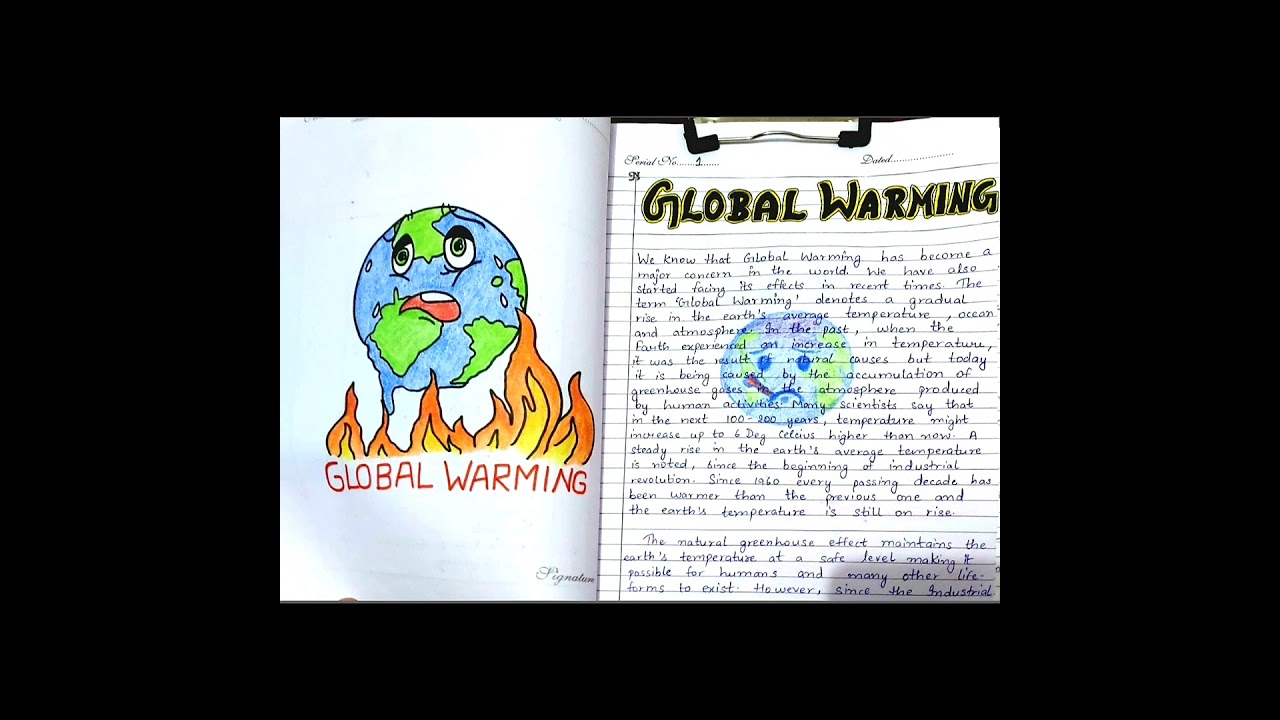 GLOBAL WARMING
Signature
Serial No. 1
Dated
GLOBAL WARMING
We know that Global Warming has become a
major concern in the world. We have also
started facing its effects in recent times. The
term 'Global Warming' denotes a gradual
rise in the earth's average temperature, ocean
and atmosphere. In the past, when the
Earth experienced an increase in temperature,
it was the result of natural causes but today
it is being caused by the accumulation of
greenhouse gases in the atmosphere produced
by human activities. Many scientists say that
in the next 100-200 years, temperature might
increase up to 6 Deg Celcius higher than now. A
steady rise in the earth's average temperature
is noted, since the beginning of industrial
revolution. Since 1960 every passing decade has
been warmer than the previous one and
the earth's temperature is still on rise.
The natural greenhouse effect maintains the
earth's temperature at a safe level making it
possible for humans and many other life-
forms to exist. However, since the Industrial